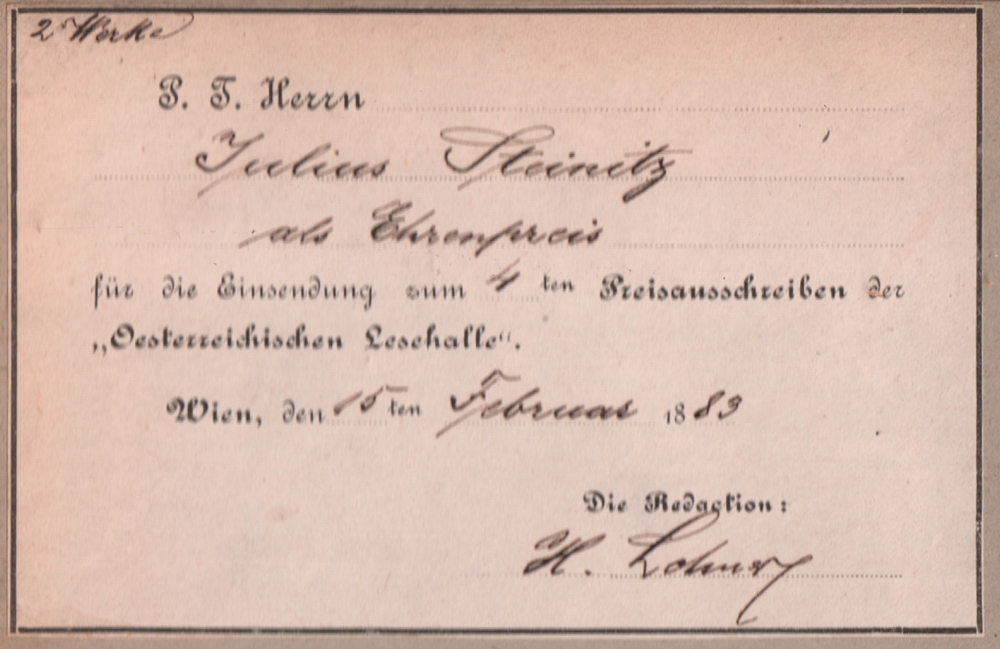 2 Werke
P. T. Herrn
Julius Steinitz
als Ehrenpreis
für die Einsendung zum 4 ten Preisausschreiben der
„Oesterreichischen Lesehalle“.
Wien, den 15 ten Februar 1883
Die Redaction:
H.